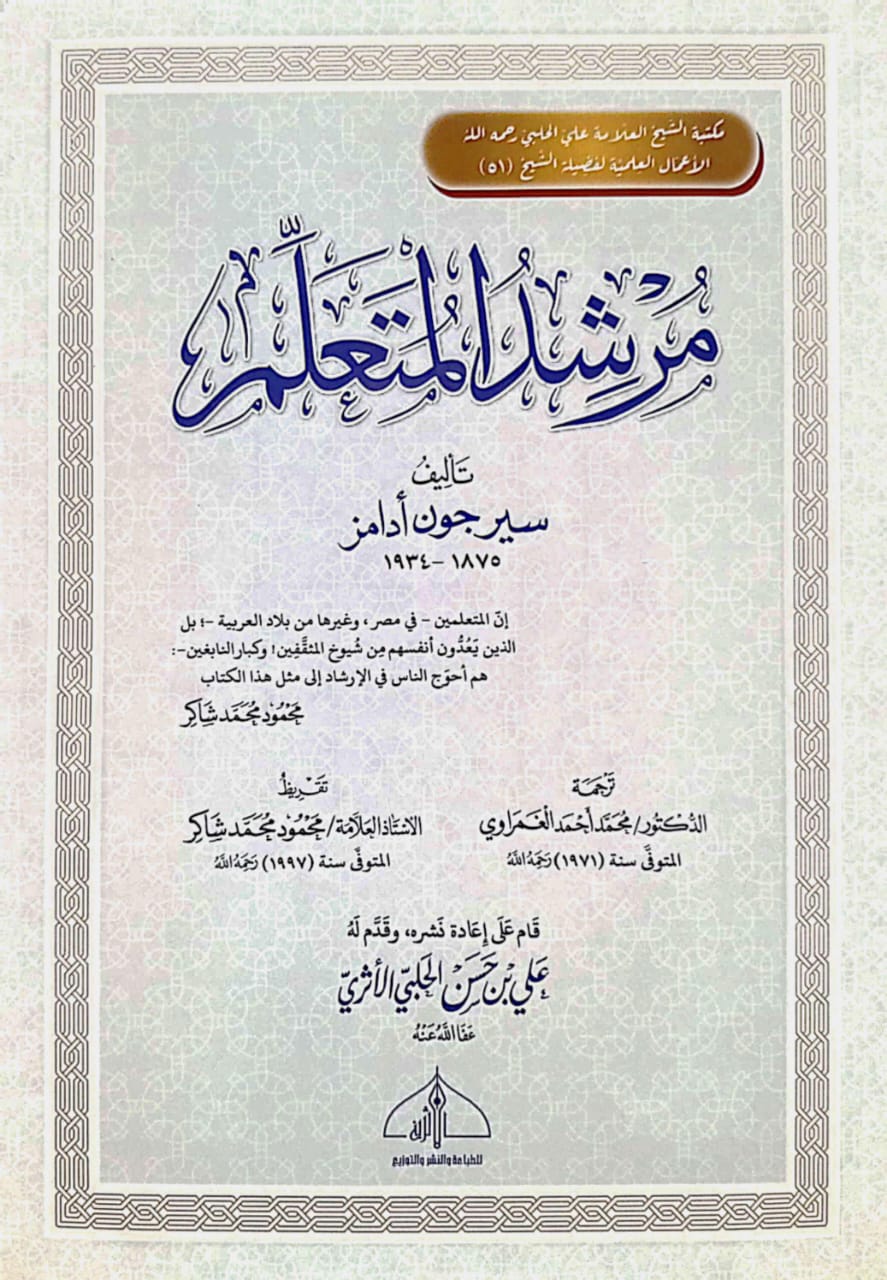 مكتبة الشيخ العلامة علي الحلبي رحمه الله
الأعمال العلمية لفضيلة الشيخ (٥١)
مُرْشِدُ المُتَعَلِّمِ
تَأليفُ
سير جون أدامز
١٨٧٥ - ١٩٣٤
إنّ المتعلمين - في مصر، وغيرها من بلاد العربية -؛ بل
الذين يَعُدُّون أنفسهم مِن شُيوخ المثقَّفِين! وكبار النابغين-:
هم أحوَج الناس في الإرشاد إلى مثل هذا الكتاب
محمُود محمَّد شاكر
تَرْجَمَة
الدُّكتُور/ محمَّد أحمَد الغَمراوي
المتوفَّى سنة (١٩٧١) رَحِمَهُ اللَّهُ
تَقْرِيظُ
الأستَاذ العَلَّامَة/ محمُود محمَّد شَاكِر
المتوفَّى سنة (١٩٩٧) رَحِمَهُ اللَّهُ
قَام عَلَى إعَادة نَشره، وقَدَّم لَهُ
عَلي بن حَسَن الحَلبيّ الأثريّ
عَفَا اللَّهُ عَنْهُ
الأثرية
للطباعة والنشر والتوزيع